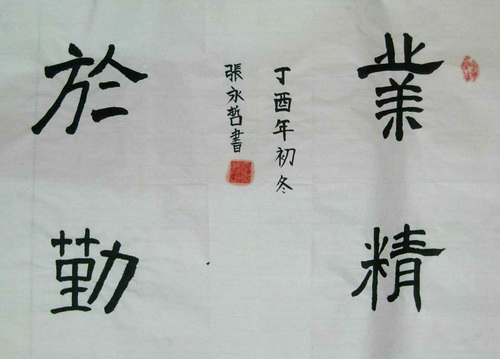 業精
於勤
丁酉年初冬
張永哲書